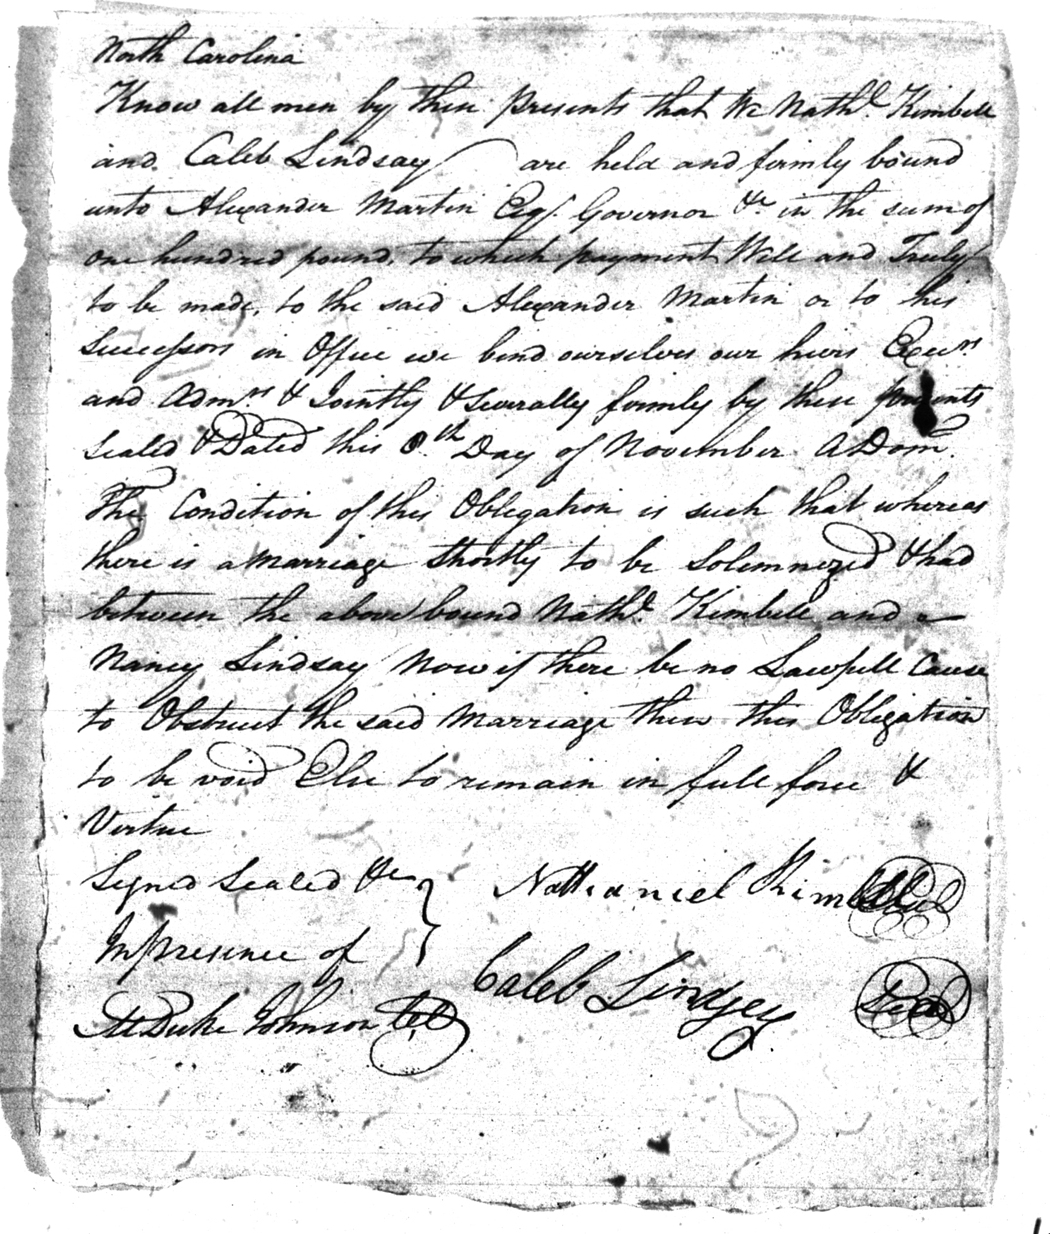 North Carolina
Know all men by these presents that We Nathl. Kimbell
and Caleb Lindsay are held and firmly bound
unto Alexander Martin Esqr. Governor &c. in the sum of
one hundred pound, to which payment Well and Truly
to be made, to the said Alexander Martin or to his
Successors in Office we bend ourselves our heirs Execrs
and Admrs & Jointly & Severally firmly by these presents
Sealed & Dated this 8th. Day of November ADom.
The Condition of this Obligation is such that whereas
there is a Marriage Shortly to be Solemnezed & had
between the above bound Nathl. Kimbell and a
Nancy Lindsay Now if there be no Lawfull Cause
to Obstruct the said Marriage then this Obligation
to be void Else to remain in full force &
Virtue
Signd Sealed &c
In presence of
Nathaniel Kimbell Seal
Caleb Lindsey Seal
M. Duke Johnson